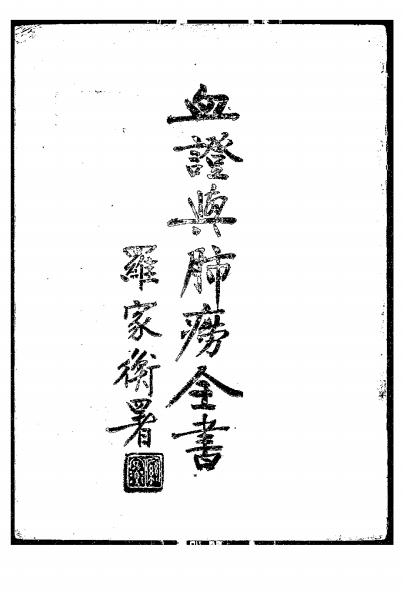 血證與肺癆全書
羅家衡署